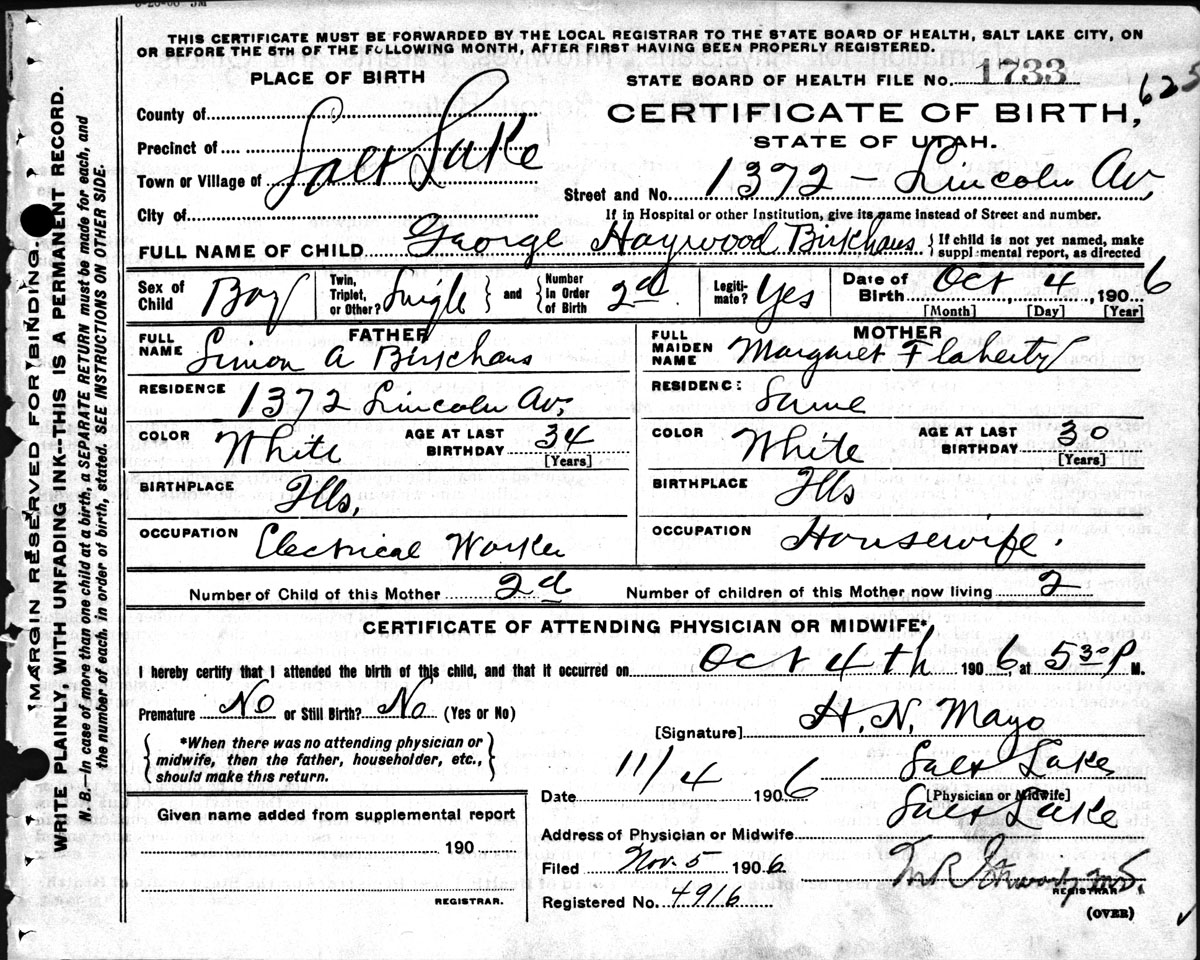 THIS CERTIFICATE MUST BE FORWARDED BY THE LOCAL REGISTRAR TO THE STATE BOARD OF HEALTH, SALT LAKE CITY, ON
OR BEFORE THE 5TH OF THE FOLLOWING MONTH, AFTER FIRST HAVING BEEN PROPERLY REGISTERED.
PLACE OF BIRTH
STATE BOARD OF HEALTH FILE No. 1733
625
County of
CERTIFICATE OF BIRTH,
Precinct of
STATE OF UTAH.
Town or Village of Salt Lake
Street and No. 1372 - Lincoln Av,
City of
If in Hospital or other Institution, give its name instead of Street and number.
FULL NAME OF CHILD George Haywood Birkhaus { If child is not yet named, make supplemental report, as directed
Sex of Child Boy Twin, Triplet, or Other? Single } and { Number in Order of Birth 2d Legitimate? Yes Date of Birth Oct 4, 1906
[Month] [Day] [Year]
FATHER
FULL NAME Simon A Birkhaus
RESIDENCE 1372 Lincoln Av,
COLOR White AGE AT LAST BIRTHDAY 34 [Years]
BIRTHPLACE Ills,
OCCUPATION Electrical Worker
MOTHER
FULL MAIDEN NAME Margaret Flaherty
RESIDENC: Same
COLOR White AGE AT LAST BIRTHDAY 30 [Years]
BIRTHPLACE Ills
OCCUPATION Housewife.
Number of Child of this Mother 2d Number of children of this Mother now living 2
CERTIFICATE OF ATTENDING PHYSICIAN OR MIDWIFE*
I hereby certify that I attended the birth of this child, and that it occurred on Oct 4th 1906, at 5 30 P M.
Premature No or Still Birth? No (Yes or No)
{ *When there was no attending physician or
midwife, then the father, householder, etc.,
should make this return. }
[Signature] H. N. Mayo
Salt Lake
[Physician or Midwife]
Date 11/4 1906
Address of Physician or Midwife Salt Lake
Filed Nov. 5 1906
REGISTRAR
Registered No. 4916
(OVER)
Given name added from supplemental report
190
REGISTRAR.
MARGIN RESERVED FOR BINDING.
WRITE PLAINLY, WITH UNFADING INK--THIS IS A PERMANENT RECORD.
N. B.—In case of more than one child at a birth, a SEPARATE RETURN must be made for each, and
the number of each, in order of birth, stated. SEE INSTRUCTIONS ON OTHER SIDE.